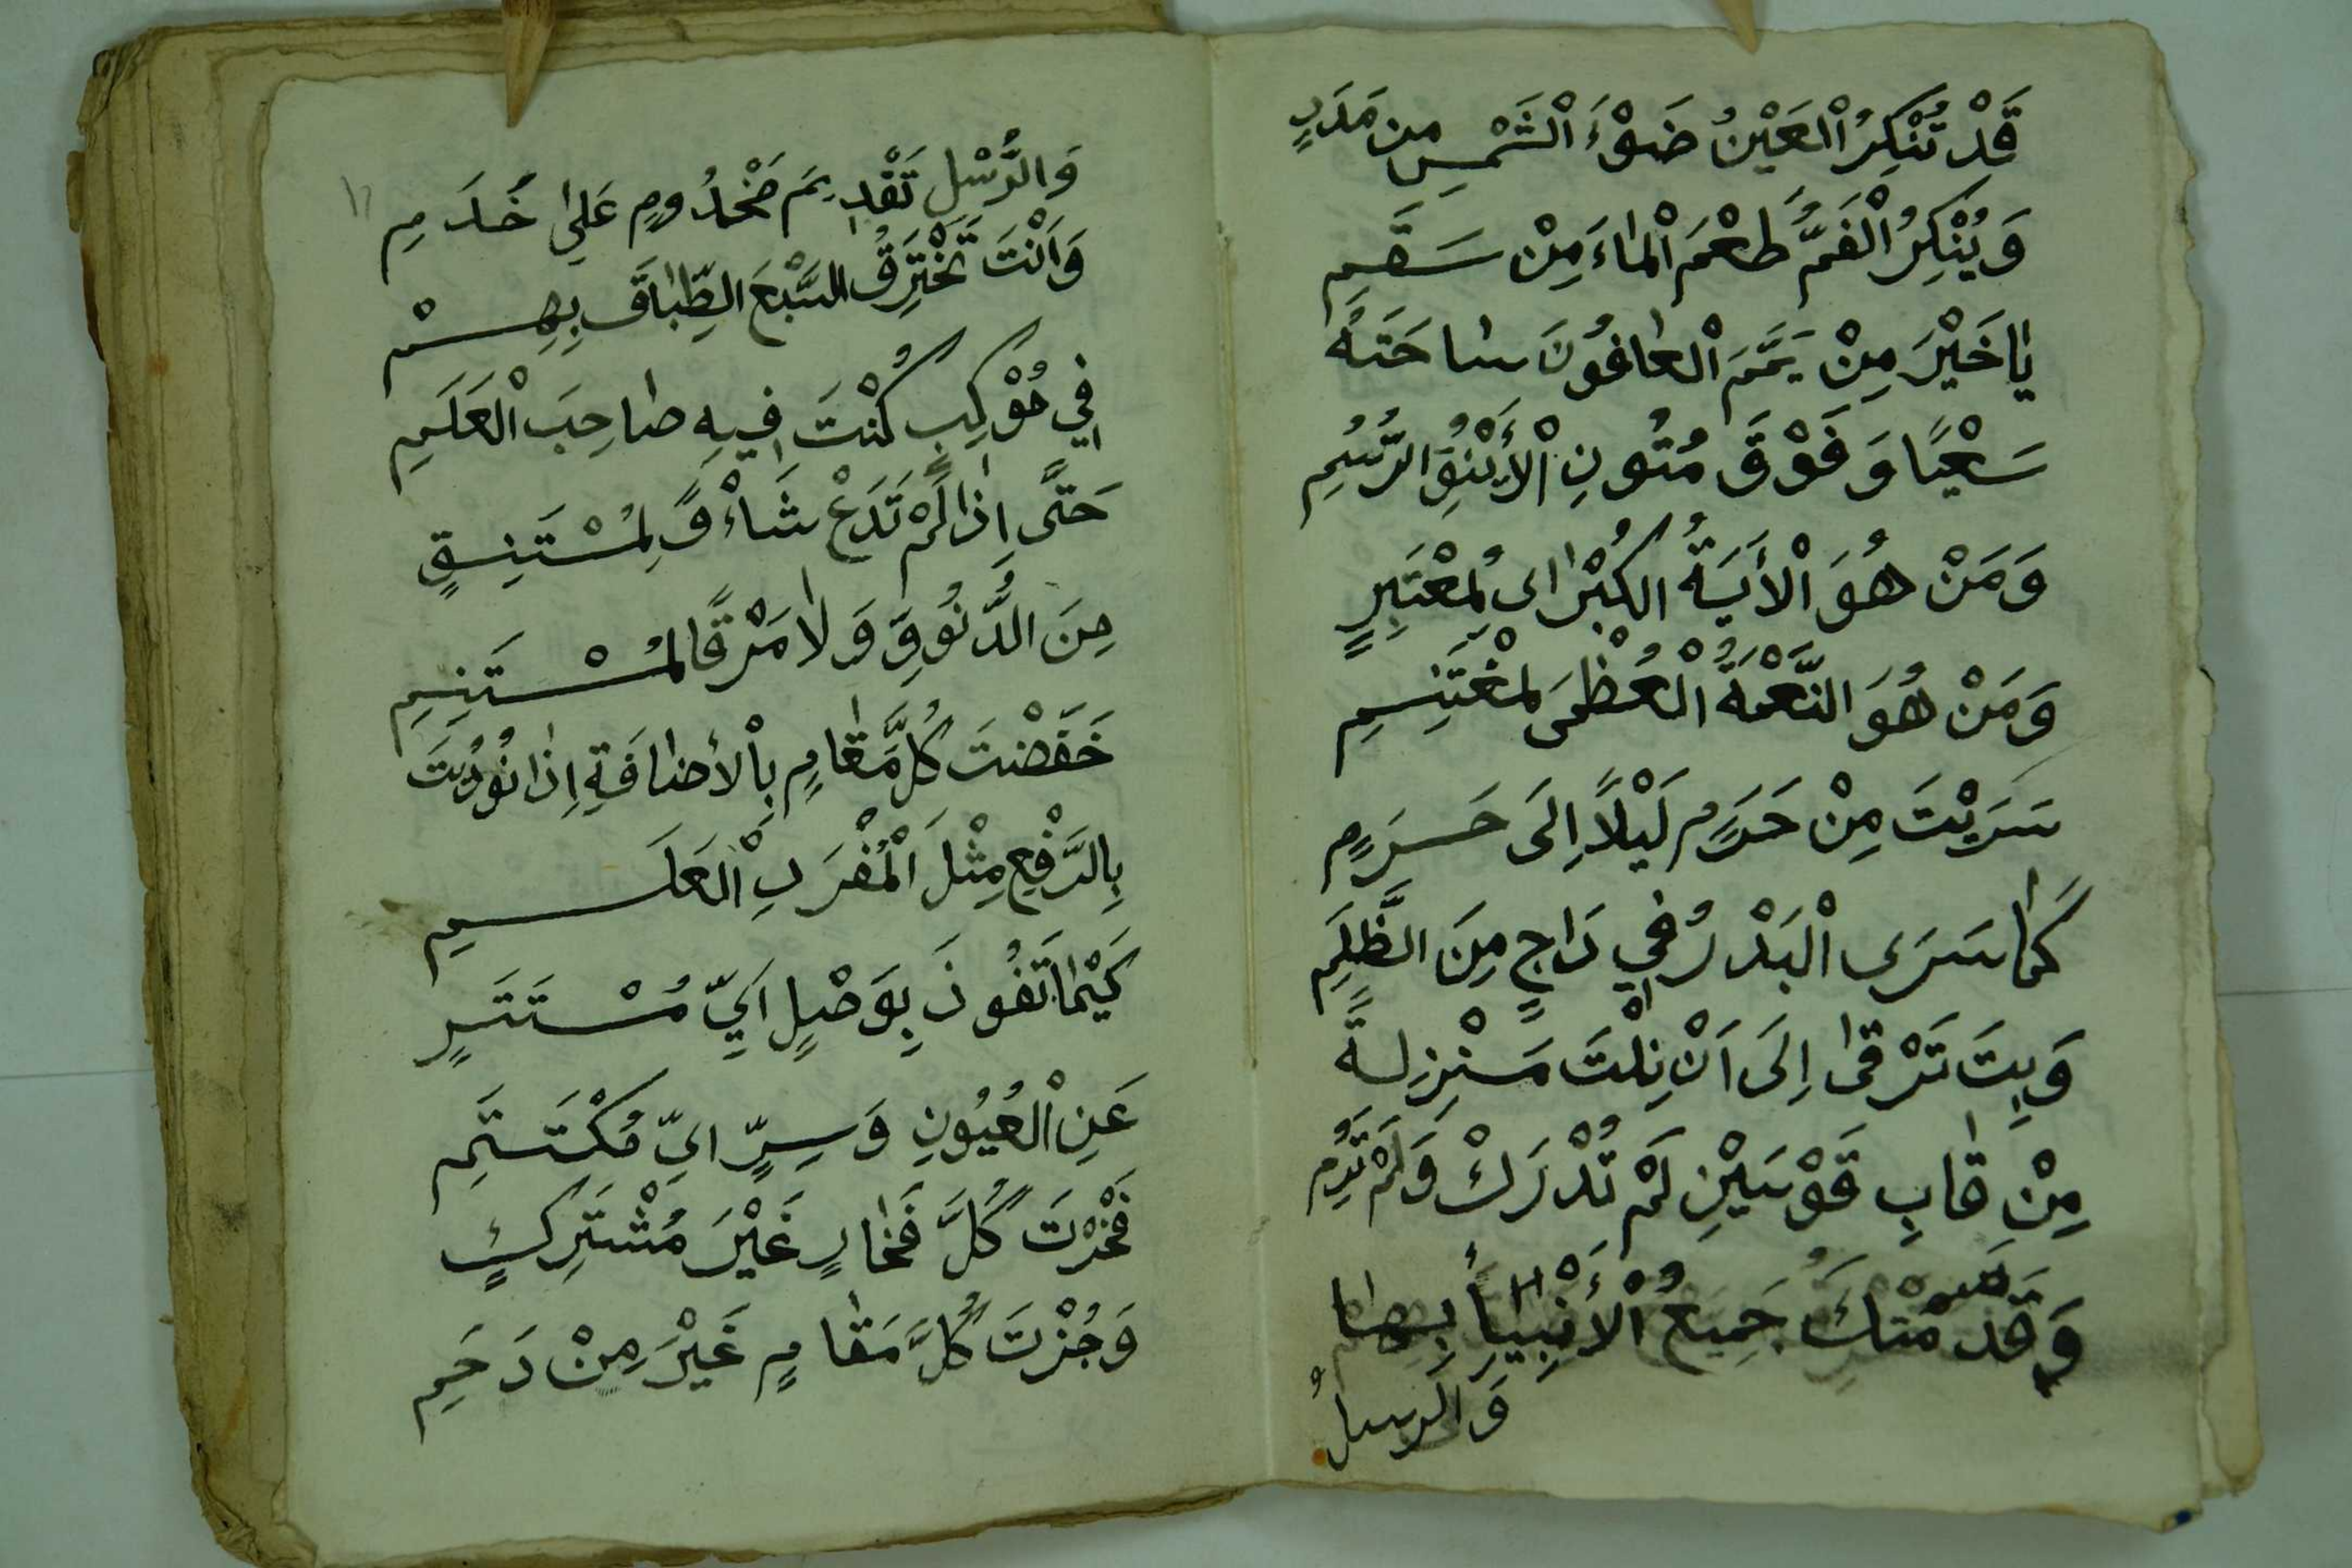 قَدْ تُنْكِرُ الْعَيْنُ ضَوْءَ الْشَّمْسِ مِن مَدَدٍ
وَيُنْكِرُ الْفَمُّ طَعْمَ الْمَاءَ مِنْ سَقَمِ
يَا خَيْرَ مِنْ يَمَّمَ الْعَافُونَ سَاحَتَهُ
سَعْيًا وَفَوْقَ مُتُونِ الْأَيْنُقِ الرُّسُمِ
وَمَنْ هُوَ الْأَيَةُ الكُبْرَاى لِمُعْتَبِرٍ
وَمَنْ هُوَ النَّعْمَةُ الْعُظْمَى لِمُغْتَنِمِ
سَرَيْتَ مِنْ حَرَمٍ لَيْلًا اِلَى حَرَمٍ
كَمَا سَرَى الْبَدْرُ فِي دَاجٍ مِنَ الظُّلَمِ
وَبِتَ تَرْقَى اِلَى اَنْ نِلْتَ مَنْزِلَةً
مِنْ قَابِ قَوْسَيْنِ لَمْ تُدْرَكْ وَلَمْ تُرَمِ
وَقَدَّمَتْكَ جَمِيعُ الْأَنْبِيَاأُ بِهَا
وَالرسلُ
١١
وَالرُّسْلِ تَقْدِيمَ مَخْدُومٍ عَلَى خَدَمِ
وَاَنْتَ تَخْتَرِقُ السَّبْعَ الطِّبَاقَ بِهِمْ
فِي مَوْكِبٍ كُنْتَ فِيهِ صَاحِبَ الْعَلَمِ
حَتَّى اِذَا لَمْ تَدَعْ شَاءْوًا لِمُسْتَبِقٍ
مِنَ الدُّنُوِّ وَلَا مَرْقًا لِمُسْتَنِمِ
خَفَضْتَ كُلَّ مَقَامٍ بِالْأضَافَةِ اِذَا نُوْدِيْتَ
بِالرَّفْعِ مِثْلَ الْمُفْرَدِ الْعَلَمِ
كَيْمَا تَفُوزَ بِوَصْلٍ اَيِّ مُسْتَتَرٍ
عَنِ الْعُيُونِ وَسِرٍّ ايِّ مُكْتَتَمِ
فَحُزْتَ كُلَّ فَخَارٍ غَيْرَ مُشْتَرِكٍ
وَجُزْتَ كُلَّ مَقَامٍ غَيْرَ مِنْ دَحَمِ